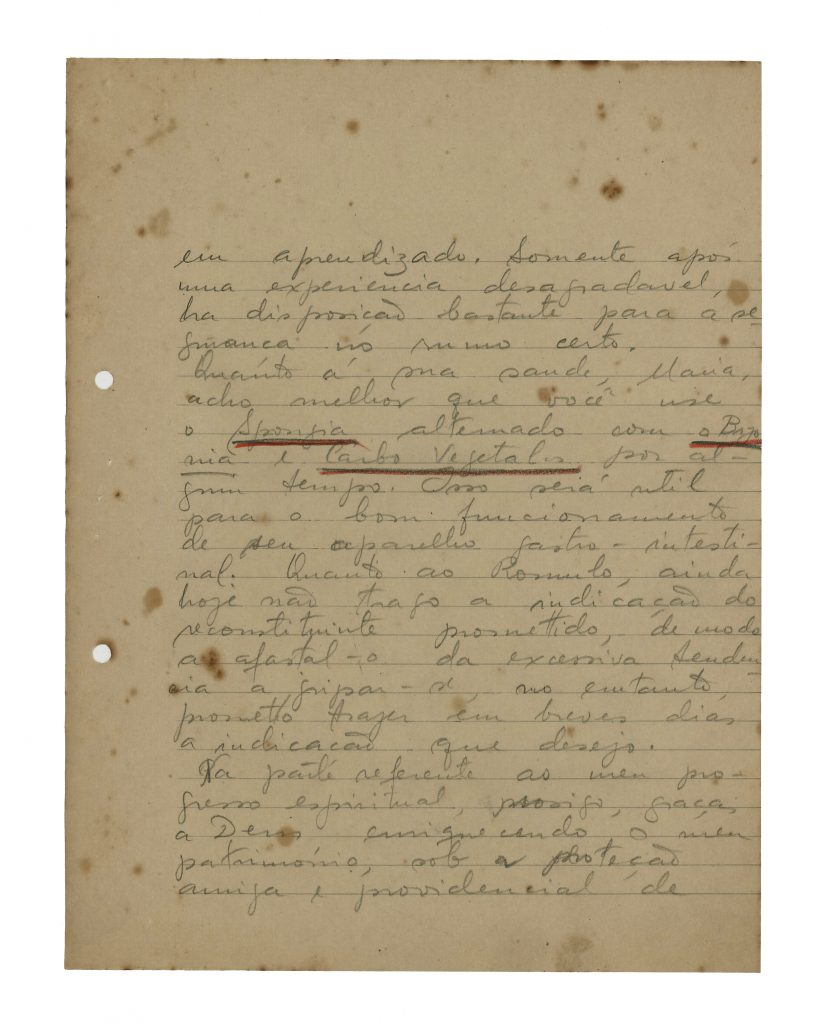 em aprendizado. Somente após
uma experiencia desagradavel,
ha disposicão bastante para a se-
gurança no rumo certo.
Quanto á sua saude, Maria,
acho melhor que você use
o Spongia alternado com o Bryo
nia e Carbo Vegetalis por al-
gum tempo. Isso será util
para o bom funcionamento
de seu aparelho gastro-intesti-
nal. Quanto ao Romulo, ainda
hoje não trago a indicação do
reconstituinte promettido, de modo
a afastal-o da excessiva tenden
cia a gripar-se, no emtanto,
prometto trazer em breves dias
a indicacão que desejo.
Na parte referente ao meu pro-
gresso espiritual, prosigo, graças
a Deus enriquecendo o meu
património, sob a proteção
amiga e providencial de